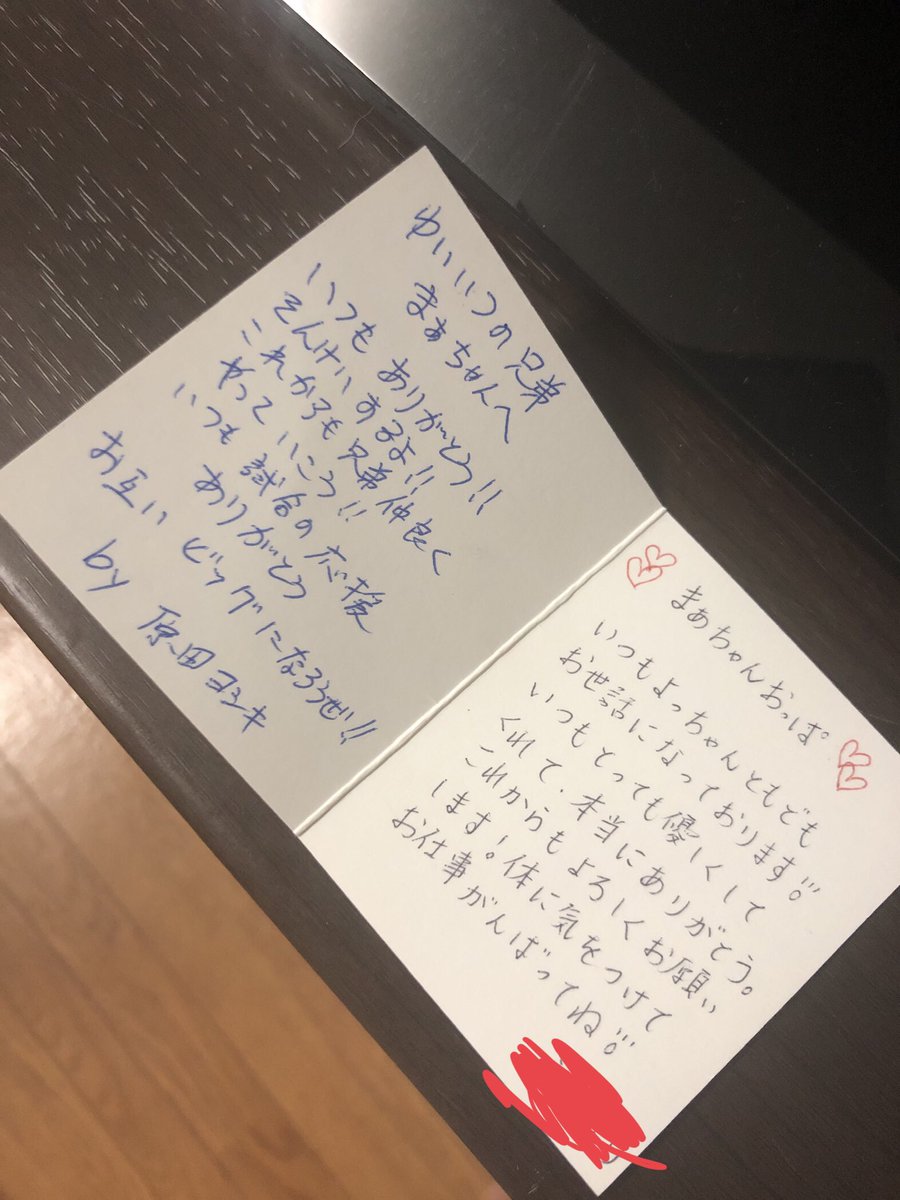 ゆいいつの兄弟
まぁちゃんへ
いつもありがとう!!
そんけいするよ!!
これからも兄弟仲良く
やっていこう!!
いつも試合の応援
ありがとう
お互いビッグになろうぜ!!
by 原田ヨシキ
まぁちゃんおっぱ。
いつもよっちゃんともども
お世話になっております!!!
いつもとっても優しくして
くれて、本当にありがとう。
これからもよろしくお願い
します!体に気をつけて
お仕事がんばってね!!!